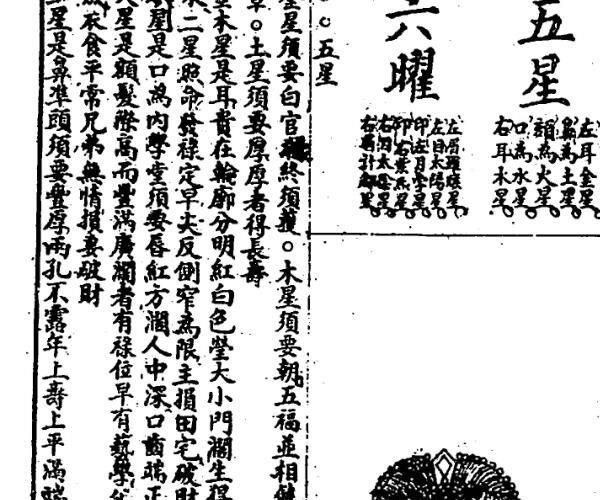 五星
左耳金星
鼻為土星
額為火星
口為水星
右耳木星
六曜
左眉羅睺星
左目太陽星
印左月孛星
印右紫炁星
右目太陰星
右眉計都星
。五星
星須要白官終須獲。木星須要朝五福並相
。土星須要厚厚者得長壽
木星是耳貴在輪廓分明紅白色瑩大小門濶生得
二星照命發祿定早尖反側窄為限主損田宅破財
星是口為內學堂須要唇紅方濶人中深口齒端正
星是額髮際高而豐滿廣濶者有祿位早有藝學
衣食平常兄弟無情損妻破財
星是鼻準頭須要豐厚兩孔不露年上壽上平滿端